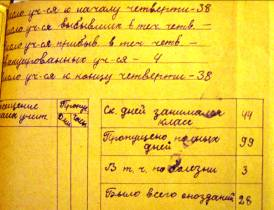 число уч-ся к началу четверти - 38
число уч-ся выбывших в теч. четв. -
число уч-ся прибыв. в теч. четв. -
уч-ся - 4
число уч-ся к концу четверти - 38
Ск. дней занимался класс 44
Пропущено полных дней 99
В т. ч. по болезни 3
Было всего опозданий 28